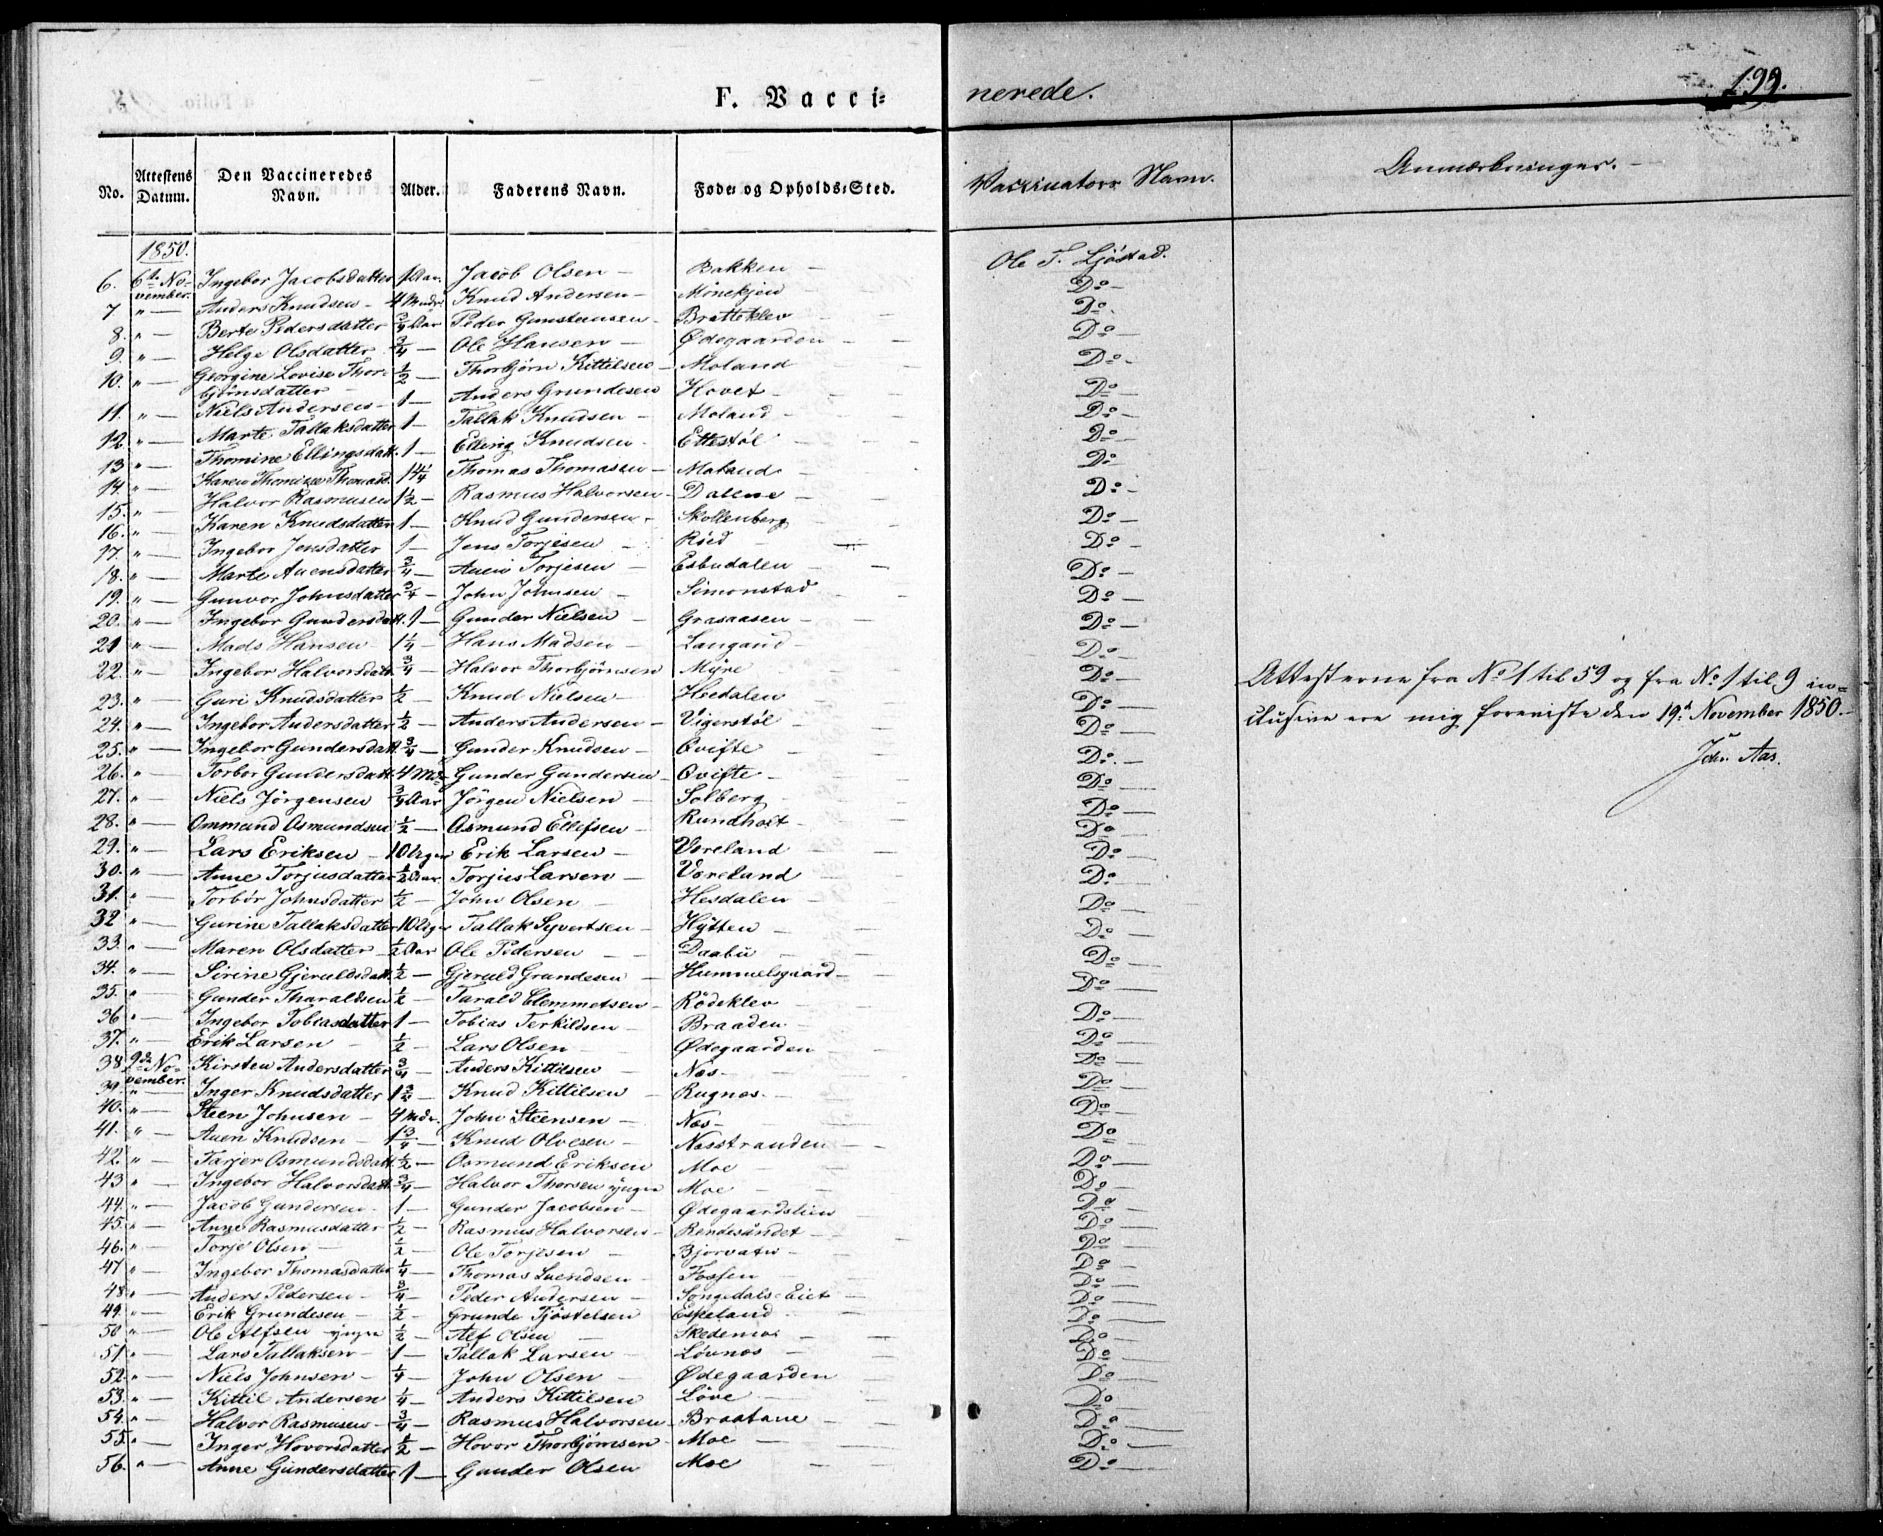 F. Vacci=
nerede.
199.
No. Attestens Datum. Den Vaccineredes Navn. Alder. Faderens Navn. Føde= og Opholds=Sted. Vaccinators Navn. Anmærkninger.
1850.
6. 6te No=vember. Ingebor Jacobsdatter 1 Aar. Jacob Olsen — Bakken — Ole T. Ljöstad.
7 " — Anders Knudsen — 4 Mndr. Knud Andersen — Mönekjen — Do —
8. " — Berte Pedersdatter 3/4 Aar Peder Gunstensen — Bratteklev Do.
9. " — Helge Olsdatter 3/4 — Ole Hansen — Ødegaarden — Do —
10. " — Georgine Lovise Thor=björnsdatter 1/2 — Thorbjörn Kittilsen — Moland Do —
11. " — Niels Andersen — 1 — Anders Grundesen Hovet — Do —
12. " — Marte Tallaksdatter 1 — Tallak Knudsen — Moland — Do —
13 " — Thomine Ellingsdatt. 1 — Elling Knudsen — Ettestöl Do —
14. " — Karen Thomine Thomasd. 1 1/4 Thomas Thomassen — Moland — Do
15. " — Halvor Rasmusen 1 1/2 — Rasmus Halvorsen — Dalene — Do —
16. " — Karen Knudsdatter 1 — Knud Gundersen — Skollenberg Do —
17. " — Ingebor Jensdatter 1 — Jens Torjesen — Röed — Do —
18. " — Marte Auensdatter 3/4 — Auen Torjesen — Esbudalen — Do —
19. " — Gunvor Johnsdatter 3/4 — John Johnsen — Simonstad Do —
20. " — Ingebor Gundersdatt. 1 — Gunder Nielsen — Grasaasen — Do —
21 " — Mads Hansen 1 1/4 — Hans Madsen — Langaud — Do —
22. " — Ingebor Halvorsdatt. 3/4 — Halvor Thorbjörnsen Myre — Do —
23. " — Guri Knudsdatter 1/2 — Knud Nielsen — Hesdalen Do —
24. " — Ingebor Andersdatter 1/2 — Anders Andersen — Vigerstöl — Do —
25. " — Ingebor Gundersdatt. 3/4 — Gunder Knudsen — Qvifte — Do —
26. " — Torbor Gundersdatt. 4 Md. Gunder Gundersen — Qvifte — Do —
27. " — Niels Jörgensen 3/4 Aar Jörgen Nielsen — Solberg — Do —
28. " — Ommund Osmundsen 1/2 — Osmund Ellefsen — Rundholt — Do —
29. " — Lars Eriksen — 10 Uger Erik Larsen — Voreland — Do —
30. " — Anne Torjusdatter 1/2 Aar Torjus Larsen — Voreland — Do —
31. " — Torbör Johnsdatter 1/2 — John Olsen — Hesdalen — Do —
32 " — Gurine Tallaksdatter 10 Uger Tallak Syvertsen — Hytten — Do —
33. " — Maren Olsdatter — 1/2 Aar Ole Pedersen — Daabu — Do —
34. " — Sirine Gjeruldsdatt. 1/2 — Gjeruld Grundesen — Hummelsgaard — Do —
35. " — Gunder Tharaldsen 1/2 — Tarald Clemmetsen — Rödeklev — Do —
36 " — Ingebor Tobiasdatter 1 — Tobias Terkildsen — Braaden — Do —
37. " — Erik Larsen — 1/2 — Lars Olsen — Ødegaarden — Do —
38 9de No=vember. Kirsten Andersdatter 3/4 — Anders Kittilsen — Næs — Do —
39 " — Inger Knudsdatter 1 3/4 — Knud Kittilsen — Rugnæs — Do —
40. " — Steen Johnsen — 4 Mdr. John Steensen — Næs — Do —
41. " — Auen Knudsen — 1 3/4 — Knud Olvesen — Næsstranden — Do —
42. " — Tarjer Osmundsdatt. 1/2 — Osmund Eriksen Moe — Do —
43 " — Ingebor Halvorsdatt. 3/4 — Halvor Thorsen yngre Moe — Do —
44. " — Jacob Gundersen — 1 — Gunder Jacobsen — Ødegaardslien — Do —
45. " — Anne Rasmusdatter 1/2 — Rasmus Halvorsen — Rendesundet — Do —
46. " — Torje Olsen — 1/2 — Ole Torjesen — Bjorvatn — Do —
47 " — Ingebor Thomasdatter 1/4 — Thomas Svendsen — Fossen — Do —
48 " — Anders Pedersen — 3/4 — Peder Andersen — Songedals=Eiet — Do —
49. " — Erik Grundesen — 1/2 — Grunde Tjöstelsen Eskeland — Do —
50 " — Ole Alfsen yngre 1/2 — Alf Olsen — Skedemos — Do —
51. " — Lars Tallaksen — 1 — Tallak Larsen — Lövnæs — Do —
52. " — Niels Johnsen — 1/4 — John Olsen — Ødegaarden Do —
53. " — Kittil Andersen 1/4 — Anders Kittilsen Löve — Do —
54. " — Halvor Rasmusen — 3/4 — Rasmus Halvorsen — Braatane — Do —
55. " — Inger Hovorsdatter 1/2 — Hovor Thorbjörnsen — Moe — Do —
56. " — Anne Gundersdatter 1 — Gunder Olsen Moe — Do —
Attesterne fra No 1 til 59 og fra No 1 til 9 in=
clusive ere mig foreviste den 19de November 1850. —
Aas.